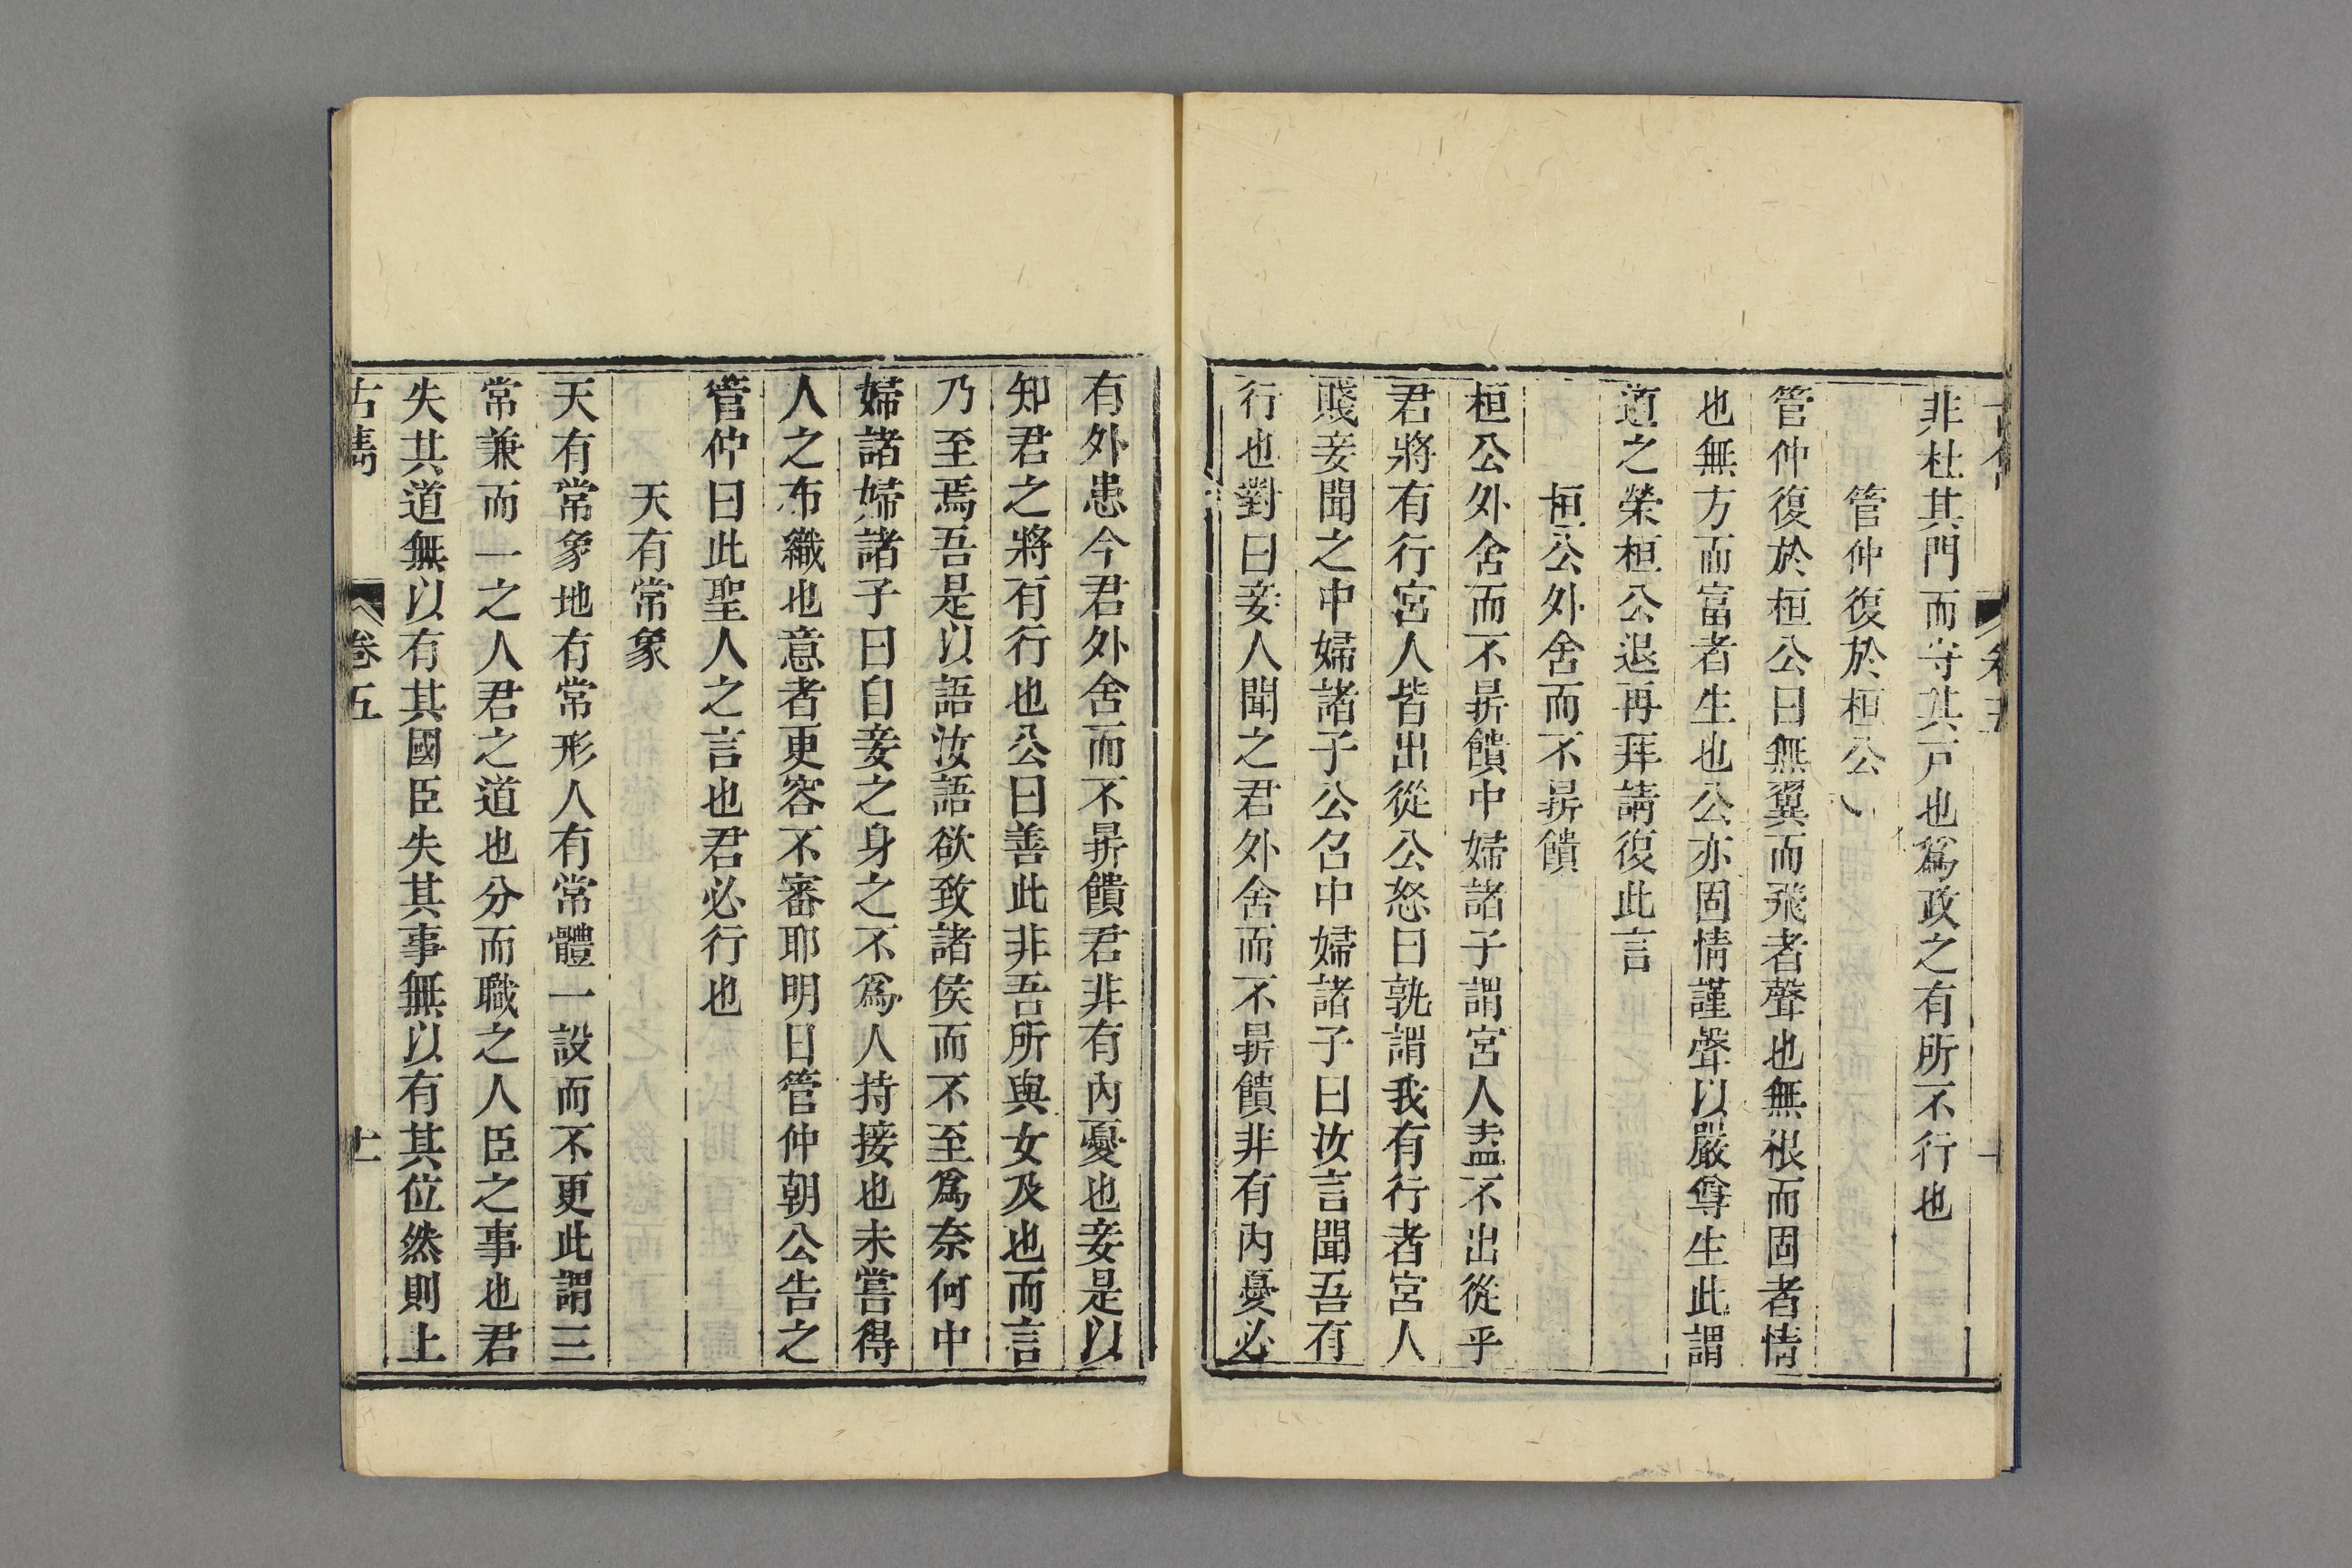 非杜其門而守其戸也爲政之有所不行也
管仲復於桓公
管仲復於桓公曰無翼而飛者聲也無根而固者情
也無方而富者生也公亦固情謹聲以嚴尊生此謂
道之榮桓公退再拜請復此言
桓公外舍而不鼎饋
桓公外舍而不鼎饋中婦諸子謂宮人盍不出從乎
君將有行宮人皆出從公怒曰孰謂我有行者宮人
賤妾聞之中婦諸子公召中婦諸子曰汝言聞吾有
行也對曰妾人聞之君外舍而不鼎饋非有內憂必
有外患今君外舍而不鼎饋君非有內憂也妾是以
知君之將有行也公曰善此非吾所與女及也而言
乃至焉吾是以語汝語欲致諸侯而不至爲奈何中
婦諸婦諸子曰自妾之身之不爲人持接也未嘗得
人之布織也意者更容不審耶明日管仲朝公告之
管仲曰此聖人之言也君必行也
天有常象
天有常象地有常形人有常體一設而不更此謂三
常兼而一之人君之道也分而職之人臣之事也君
失其道無以有其國臣失其事無以有其位然則上
卷五